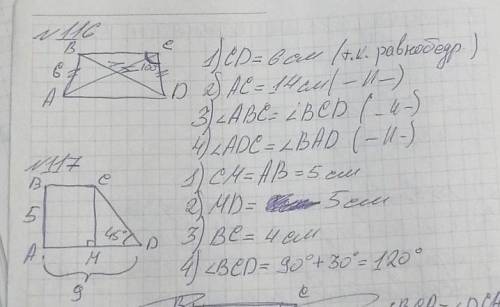 №116
B C
6 100°
A D
1) CD = 6 см (т.к. равнобедр.)
2) AC = 14 см (–//–)
3) ∠ABC = ∠BCD (–//–)
4) ∠ADC = ∠BAD (–//–)
№117
B C
5 45°
A M D
9
1) CM = AB = 5 см
2) MD = 5 см
3) BC = 4 см
4) ∠BCD = 90° + 30° = 120°
C